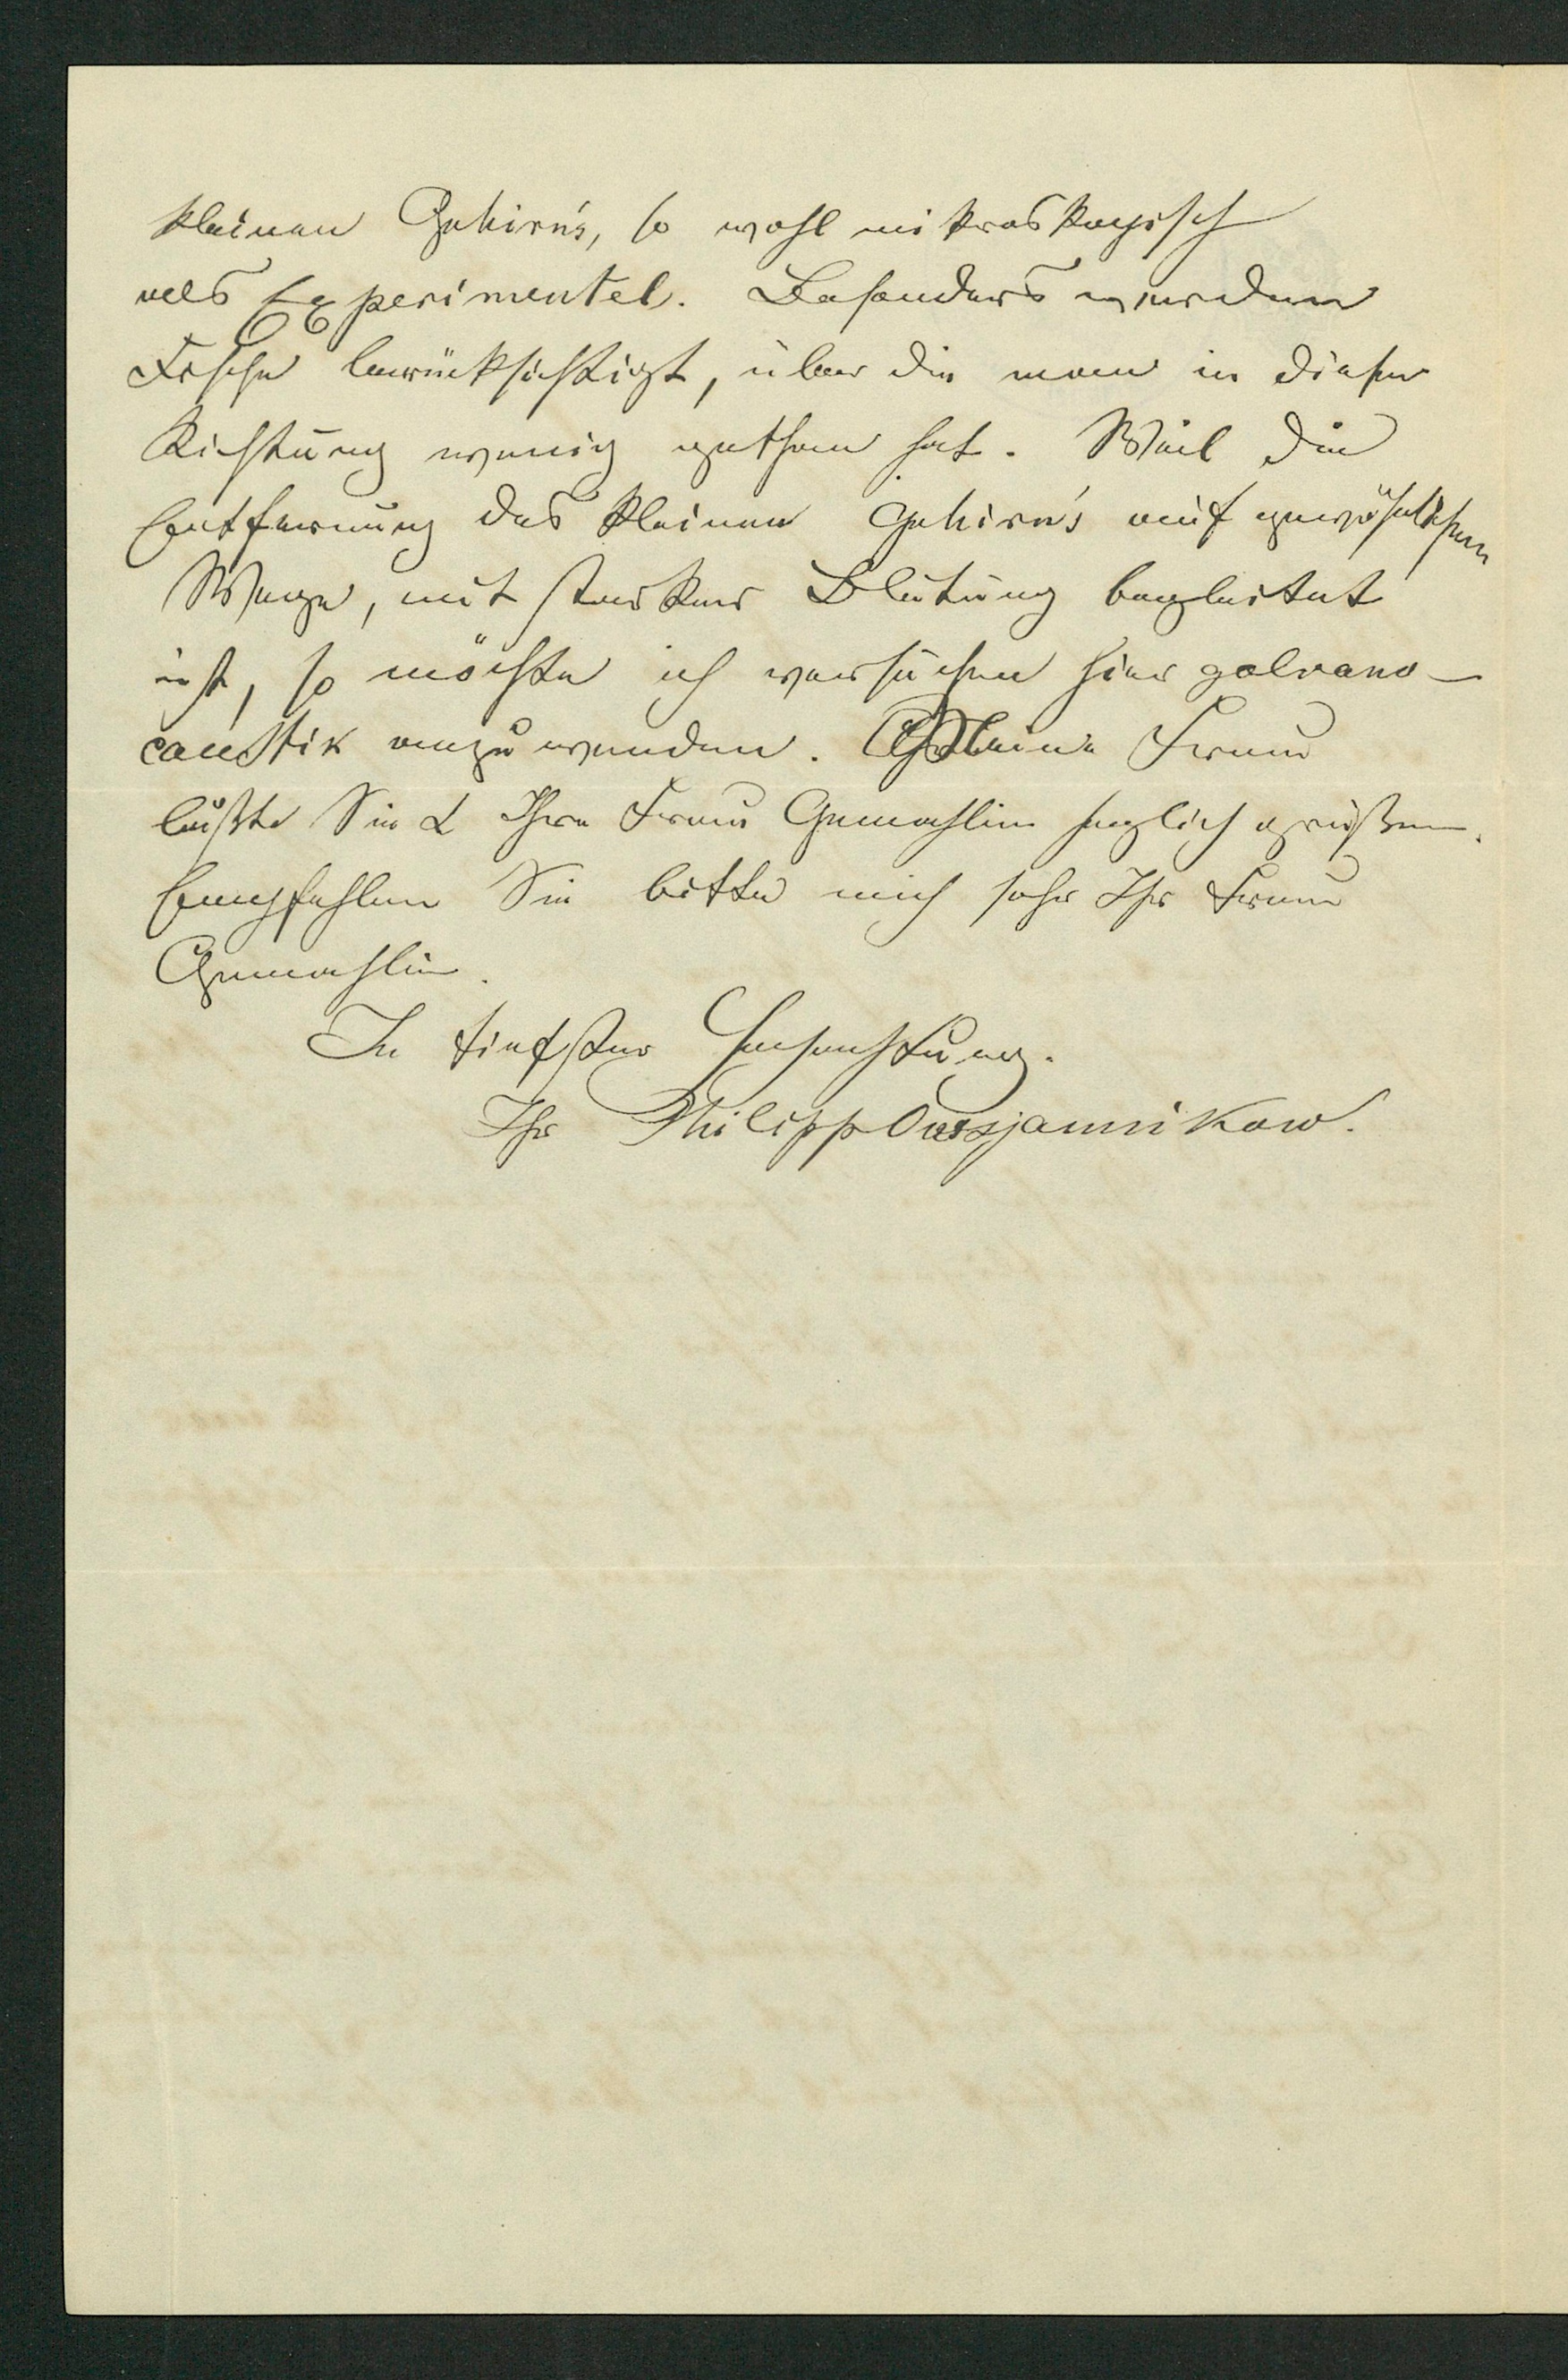 kleinen Gehirn's, so wohl mikroskopisch
als Experimentel. Besonders werden
Fische berücksichtigt, über die man in dieser
Richtung wenig gethan hat. Weil die
Entfernung des kleinen Gehirn's auf gewöhnlichem
Wege, mit starker Blutung begleitet
ist, so möchte ich versuchen hier galvano-
caustik anzuwenden. Meine Frau
läßt Sie & Ihre Frau Gemahlin herzlich grüßen.
Empfehlen Sie bitte mich sehr Ihr Frau
Gemahlin.
In tiefster Hochachtung.
Ihr Philipp Owsjannikow.